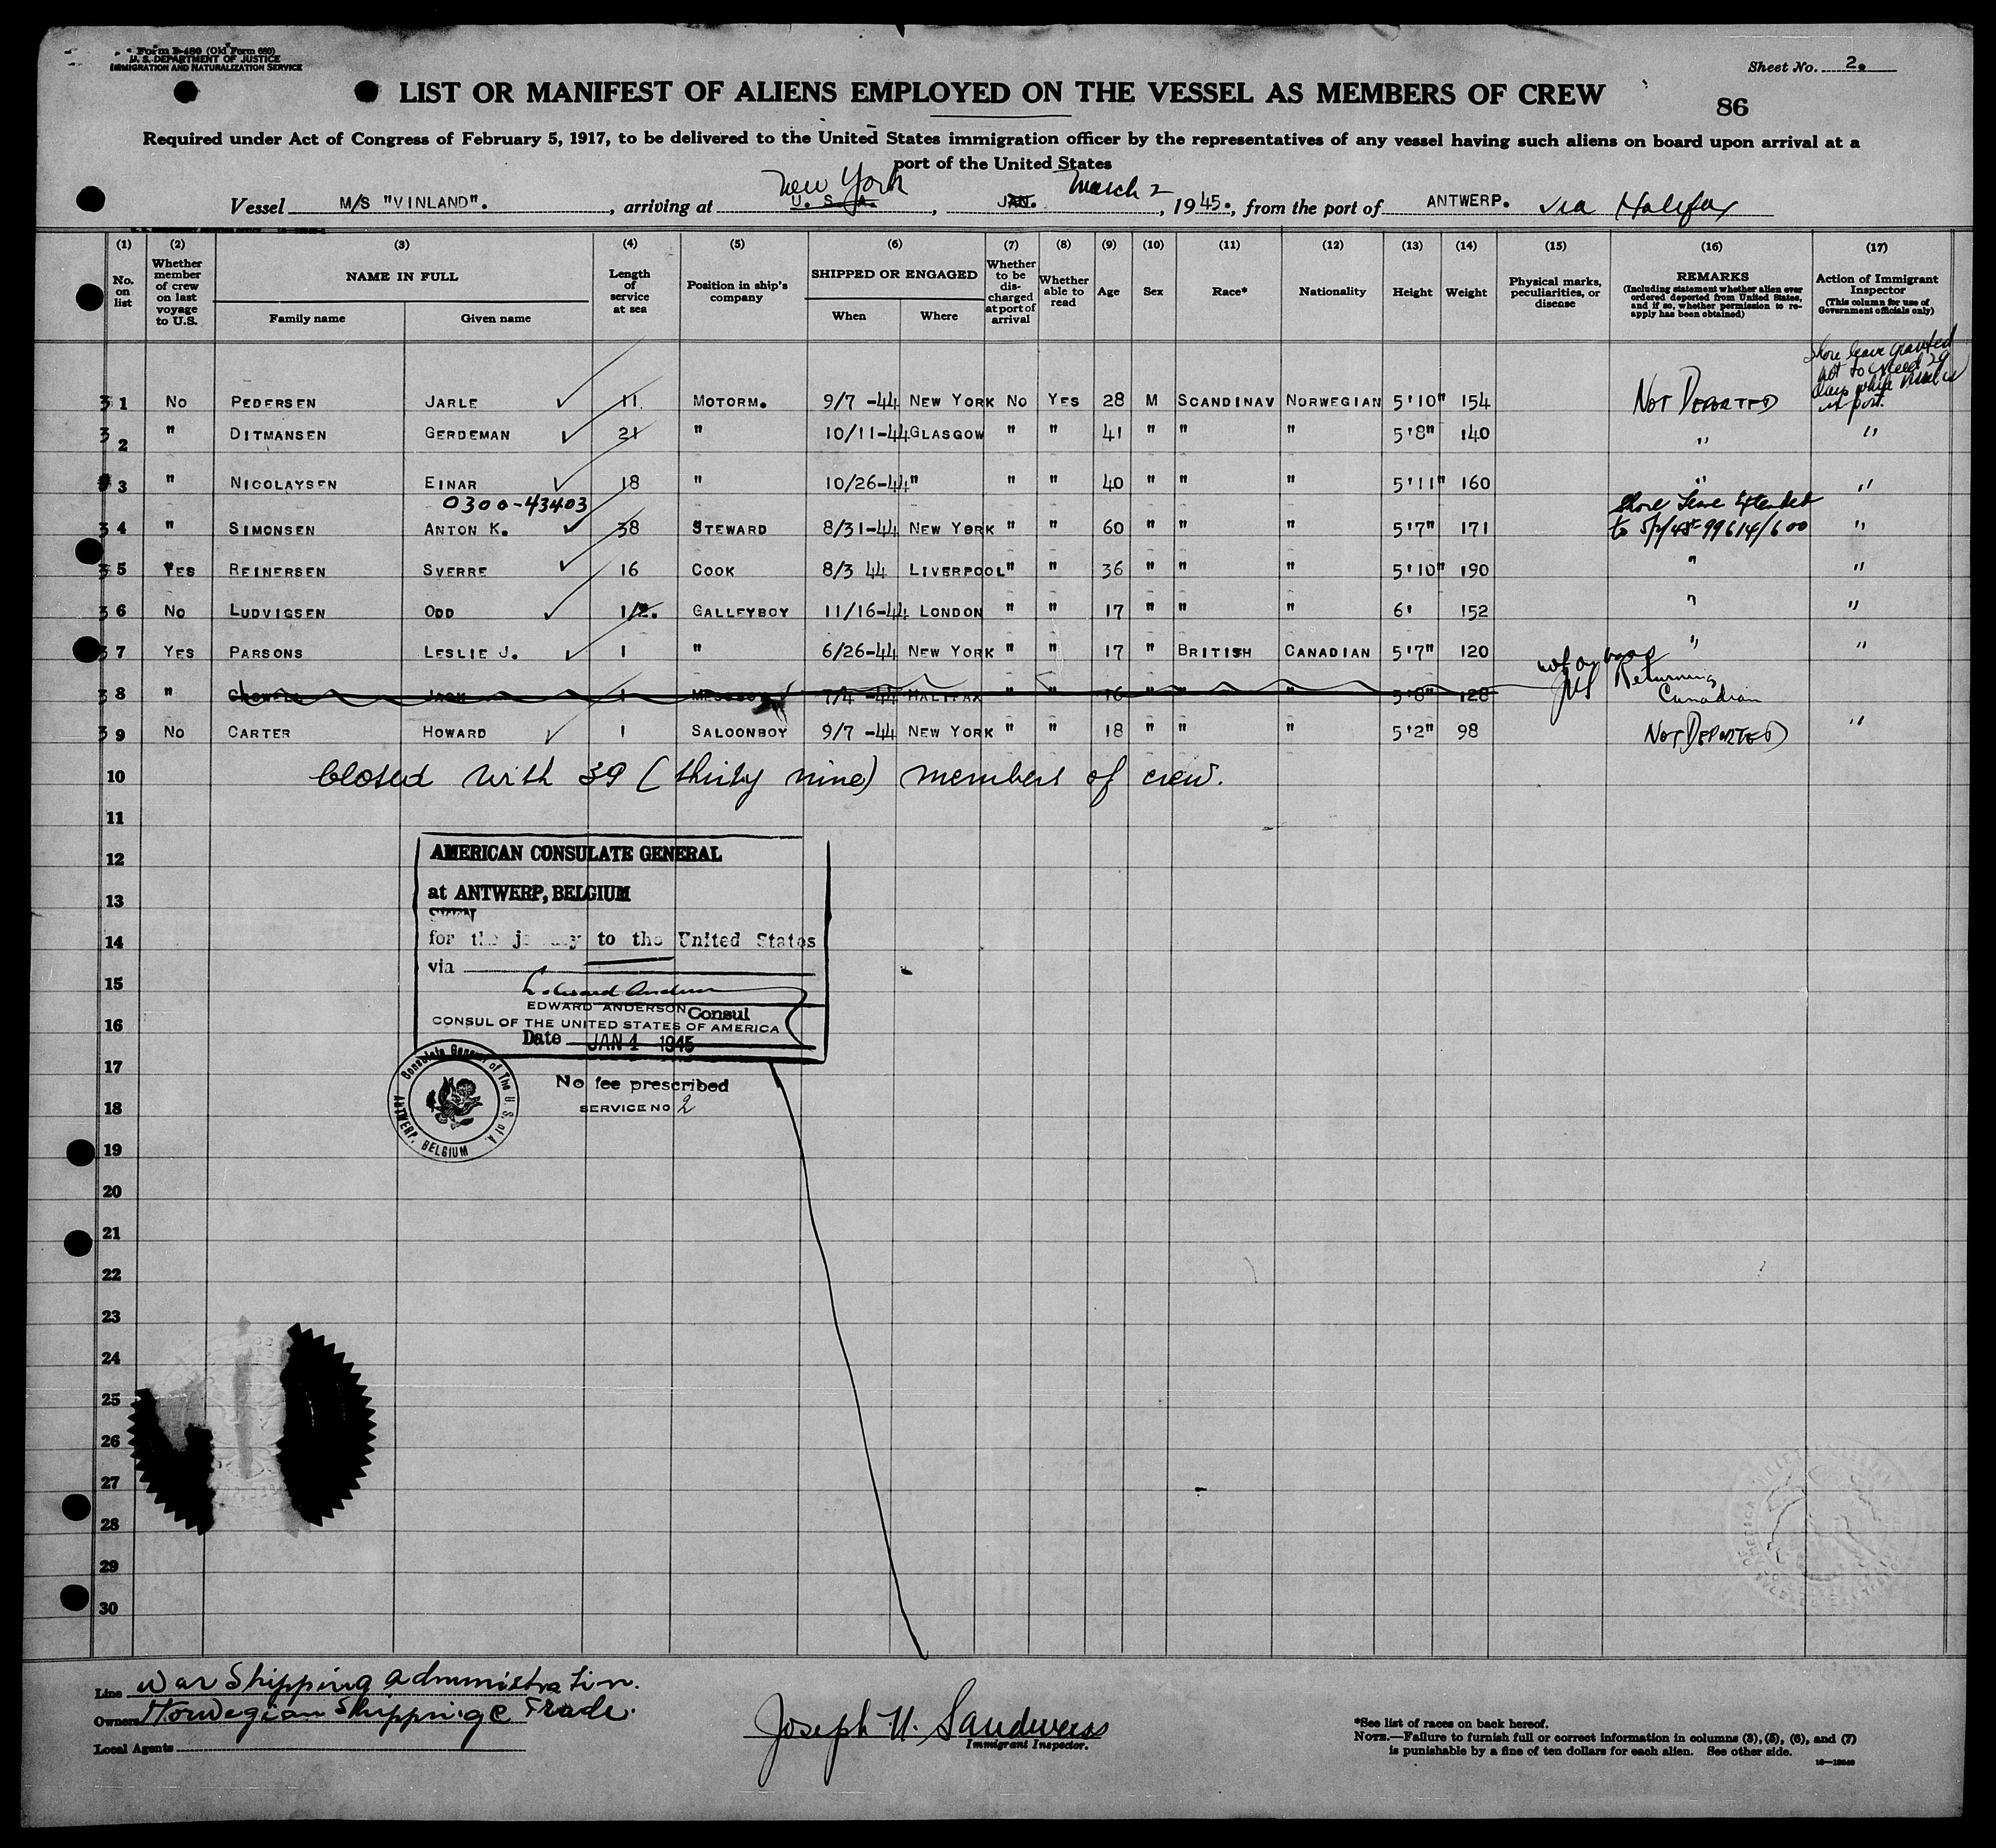 Form I-480 (Old Form 680)
U. S. DEPARTMENT OF JUSTICE
IMMIGRATION AND NATURALIZATION SERVICE
Sheet No. 2.
LIST OR MANIFEST OF ALIENS EMPLOYED ON THE VESSEL AS MEMBERS OF CREW
86
Required under Act of Congress of February 5, 1917, to be delivered to the United States immigration officer by the representatives of any vessel having such aliens on board upon arrival at a
port of the United States
New York March 2
Vessel M/S "VINLAND"., arriving at U. S. A., JAN., 1945., from the port of ANTWERP. via Halifax
(1) (2) (3) (4) (5) (6) (7) (8) (9) (10) (11) (12) (13) (14) (15) (16) (17)
No. on list
Whether member of crew on last voyage to U.S.
NAME IN FULL
Family name Given name
Length of service at sea
Position in ship's company
SHIPPED OR ENGAGED
When Where
Whether to be discharged at port of arrival
Whether able to read
Age
Sex
Race*
Nationality
Height
Weight
Physical marks, peculiarities, or disease
REMARKS
(Including statement whether alien ever ordered deported from United States, and if so, whether permission to re-apply has been obtained)
Action of Immigrant Inspector
(This column for use of Government officials only)
Shore leave granted
not to exceed 29
days while vessel is
in port.
31 No PEDERSEN JARLE 11 MOTORM. 9/7 -44 NEW YORK No YES 28 M SCANDINAV NORWEGIAN 5'10" 154 NOT DEPORTED
3 2 " DITMANSEN GERDEMAN 21 " 10/11-44 GLASGOW " " 41 " " " 5'8" 140 " "
3 " NICOLAYSEN EINAR 18 " 10/26-44 " " " 40 " " " 5'11" 160 " "
0300-43403
Shore Leave Extended
34 " SIMONSEN ANTON K. 38 STEWARD 8/31-44 NEW YORK " " 60 " " " 5'7" 171 to 5/2/45 99614/600 "
35 YES REINERSEN SVERRE 16 COOK 8/3 44 LIVERPOOL " " 36 " " " 5'10" 190 " "
36 No LUDVIGSEN ODD 1/2. GALLEYBOY 11/16-44 LONDON " " 17 " " " 6' 152 " "
37 YES PARSONS LESLIE J. 1 " 6/26-44 NEW YORK " " 17 " BRITISH CANADIAN 5'7" 120 " "
not on board
38 " CROWELL JACK 1 MESSBOY 7/4 -44 HALIFAX " " 16 " " " 5'8" 128 Returning
Canadian
39 No CARTER HOWARD 1 SALOONBOY 9/7 -44 NEW YORK " " 18 " " " 5'2" 98 NOT DEPORTED "
10 Closed with 39 (thirty nine) members of crew.
11
12 AMERICAN CONSULATE GENERAL
13 at ANTWERP, BELGIUM
SEEN
14 for the journey to the United States
via
15
Edward Anderson
EDWARD ANDERSON Consul
16 CONSUL OF THE UNITED STATES OF AMERICA
Date JAN 4 1945
17
Consulate General of The U. S. of A. ANTWERP, BELGIUM
No fee prescribed
18 SERVICE NO 2
19
20
21
22
23
24
25
26
27
28
29
30
Line War Shipping Administration.
Owners Norwegian Shipping & Trade.
Local Agents
Immigrant Inspector.
*See list of races on back hereof.
NOTE.—Failure to furnish full or correct information in columns (3), (5), (6), and (7)
is punishable by a fine of ten dollars for each alien. See other side.